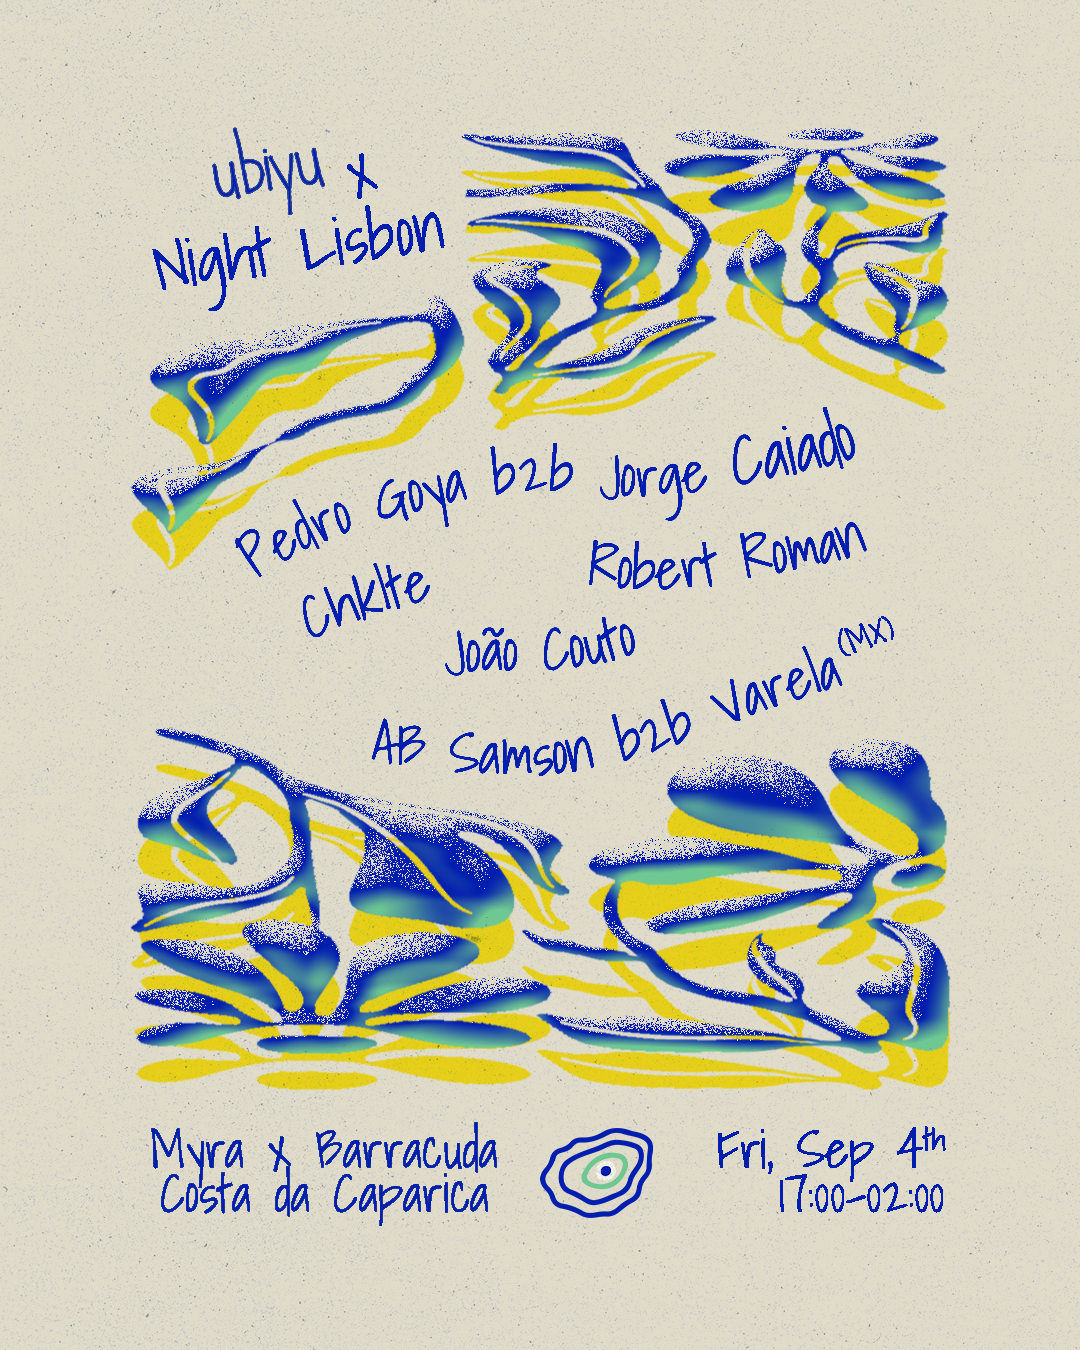 ubiyu x
Night Lisbon
Pedro Goya b2b Jorge Caiado
Chklte
Robert Roman
João Couto
AB Samson b2b Varela (MX)
Myra x Barracuda
Costa da Caparica
Fri, Sep 4th
17:00-02:00